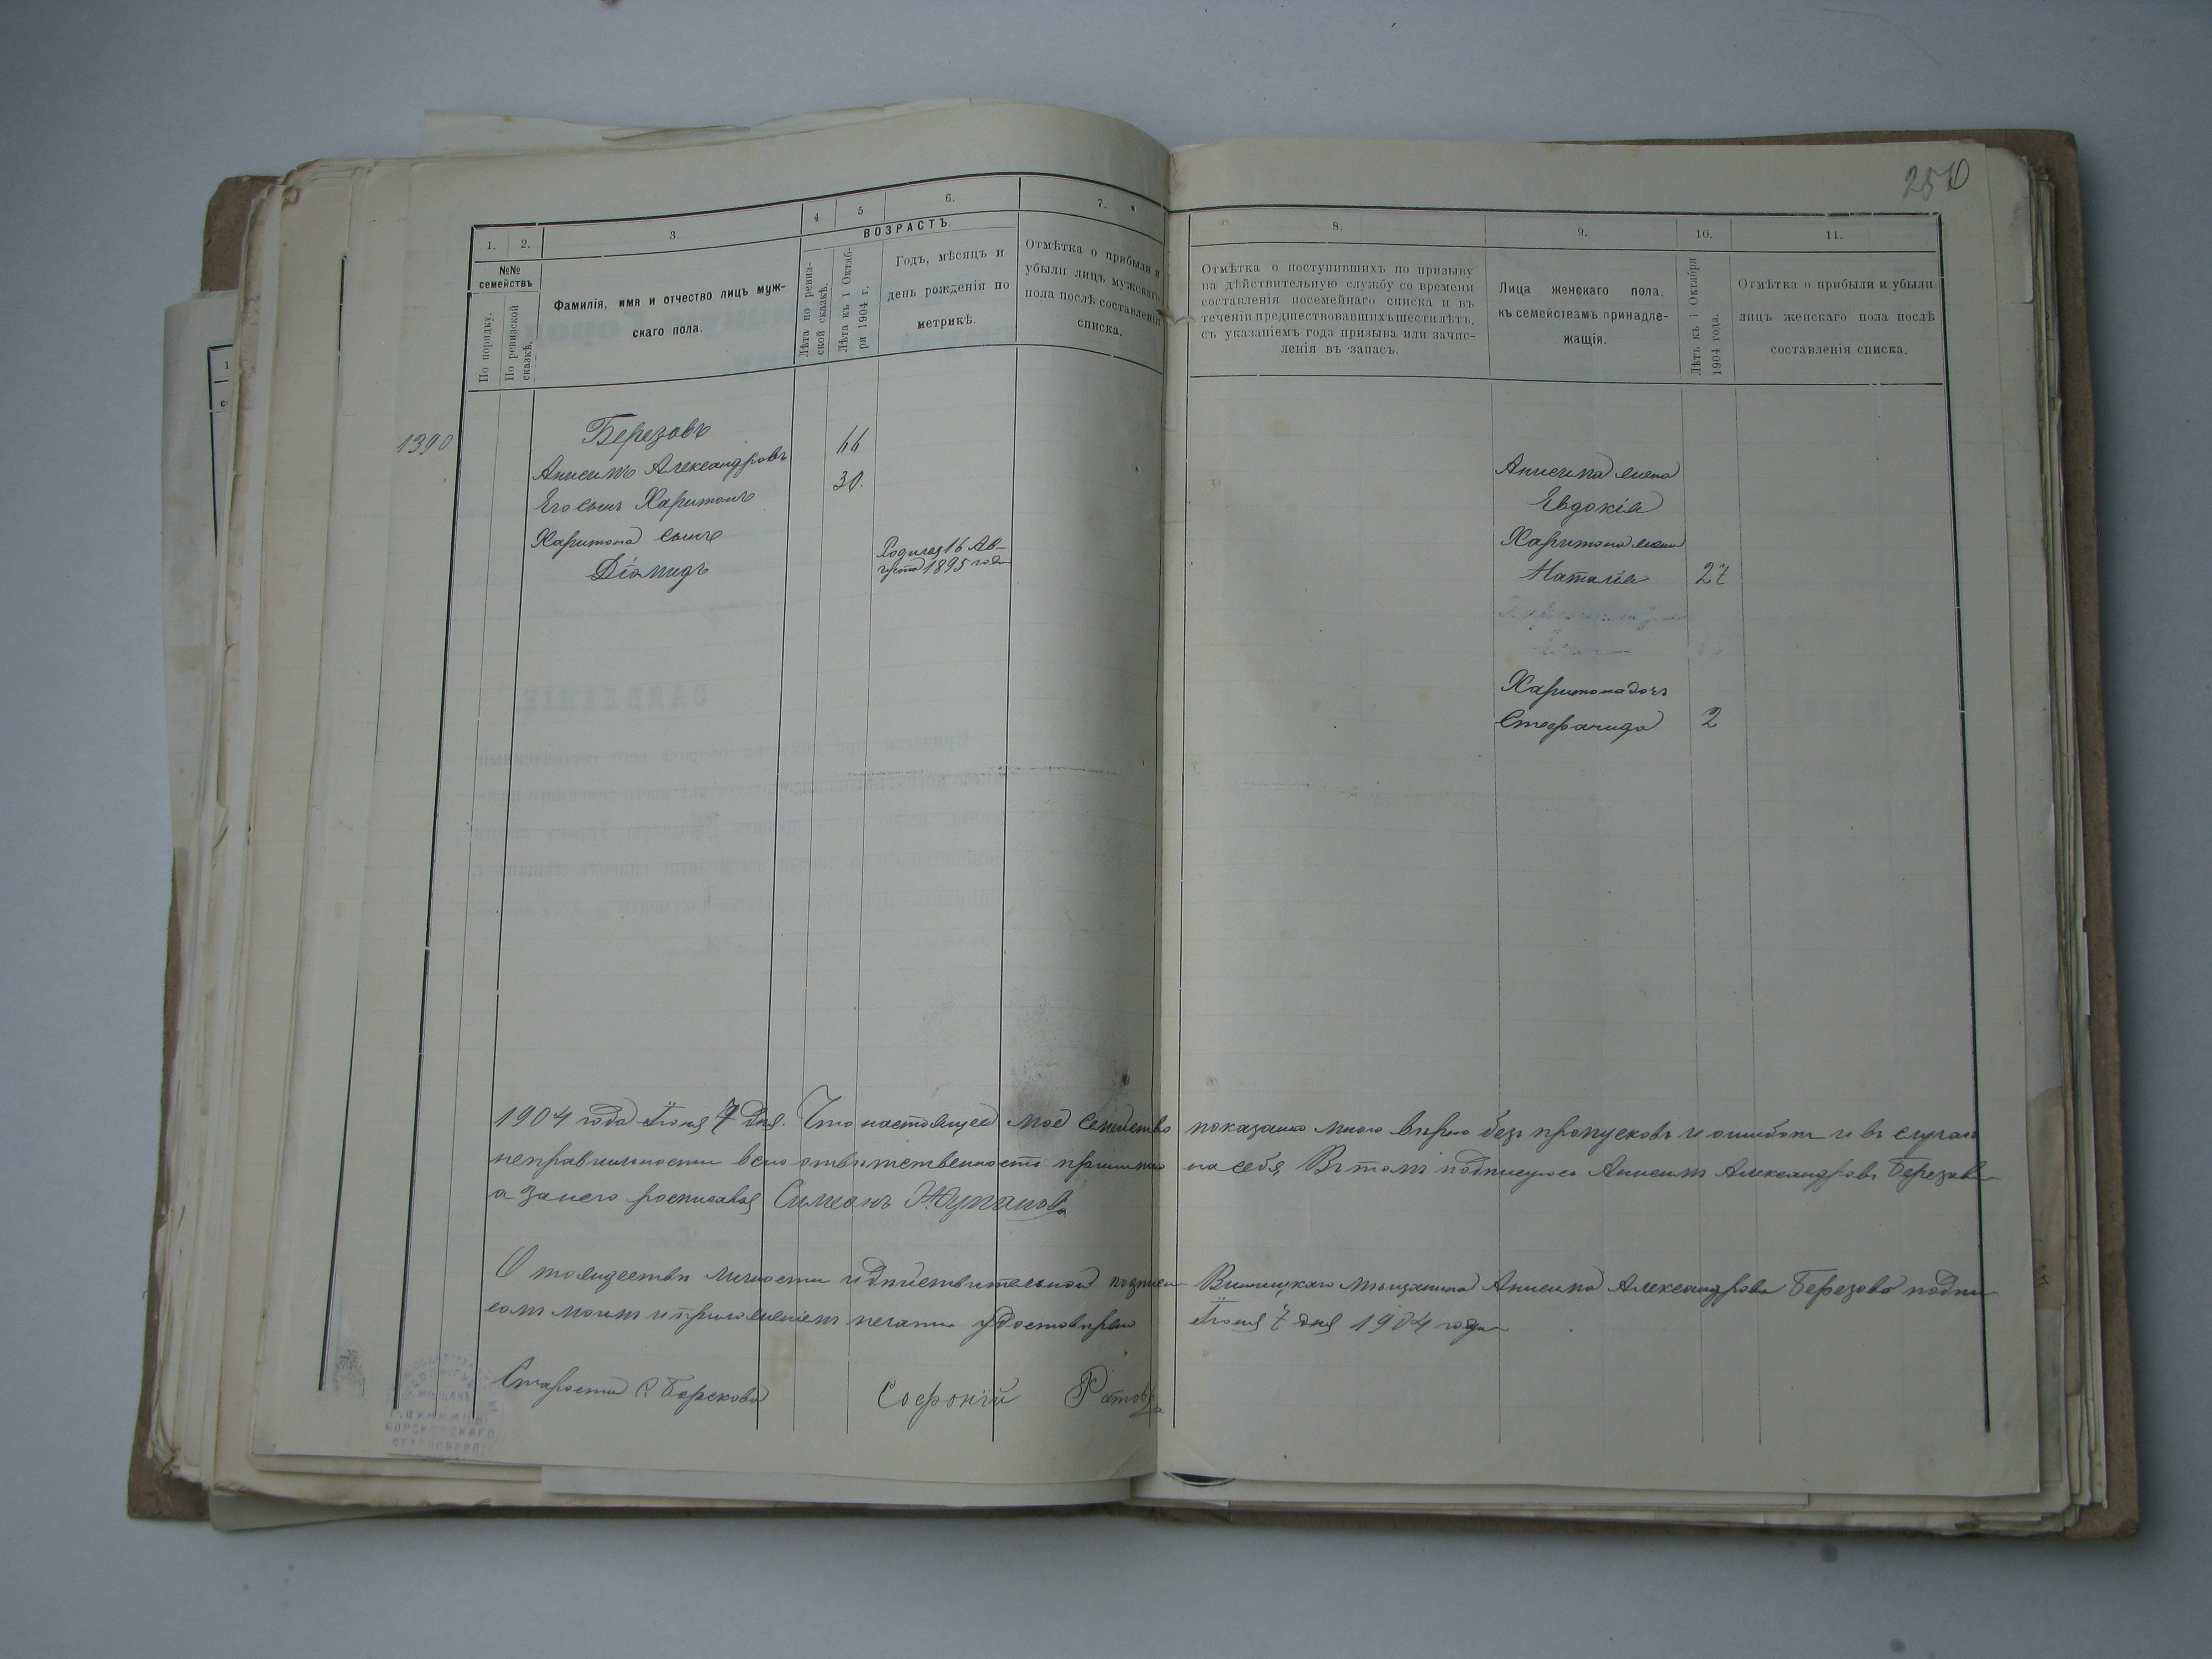 250
1. 2. 3. 4 5 6. 7.
ВОЗРАСТЪ.
№№ семействъ
По порядку.
По ревизской сказкѣ.
Фамилія, имя и отчество лицъ муж-
скаго пола.
Лѣта по ревиз-
ской сказкѣ.
Лѣта къ 1 Октяб-
ря 1904 г.
Годъ, мѣсяцъ и
день рожденія по
метрикѣ.
Отмѣтка о прибыли и
убыли лицъ мужскаго
пола послѣ составленія
списка.
8. 9. 10. 11.
Отмѣтка о поступившихъ по призыву
на дѣйствительную службу со времени
составленія посемейнаго списка и въ
теченіи предшествовавшихъ шести лѣтъ,
съ указаніемъ года призыва или зачис-
ленія въ запасъ.
Лица женскаго пола,
къ семействамъ принадле-
жащія.
Лѣтъ къ 1 Октября
1904 года.
Отмѣтка о прибыли и убыли
лицъ женскаго пола послѣ
составленія списка.
1390
Березовъ
Анисимъ Александровъ 66
Его сынъ Харитонъ 30.
Харитона сынъ
Діомидъ
Родился 16 Ав-
густа 1895 года
Анисима жена
Евдокія
Харитона жена
Наталія 27
Харитона дочь
Стефанида 2
1904 года Іюня 7 дня. Что настоящее мое семейство показано мною вѣрно безъ пропусковъ и ошибокъ и въ случаи
неправильности всю отвѣтственность принимаю на себя Въ томъ подписуюсь Анисимъ Александровъ Березовъ
а за него росписался Симеонъ
О тождествѣ личности и дѣйствительной подписи Винницкаго мѣщанина Анисима Александрова Березова подпи-
сомъ моимъ и приложеніемъ печати удостовѣряю Іюня 7 дня 1904 года
Староста С. Борскова Софроній